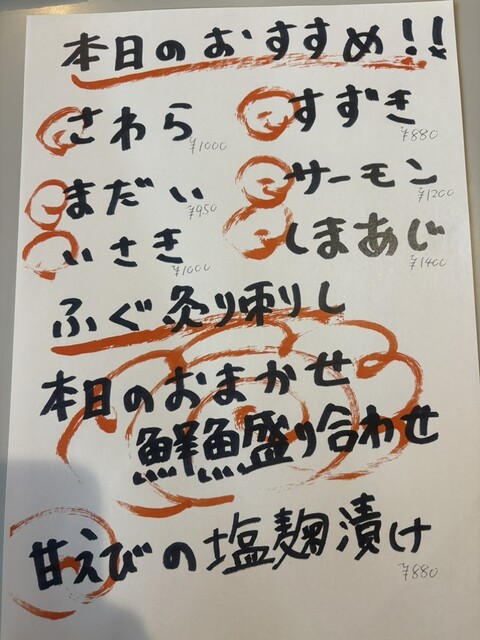 本日のおすすめ!!
さわら ¥1000
すずき ¥880
まだい ¥950
サーモン ¥1200
いさき ¥1000
しまあじ ¥1400
ふぐ炙り刺し
本日のおまかせ
鮮魚盛り合わせ
甘えびの塩麹漬け
¥880